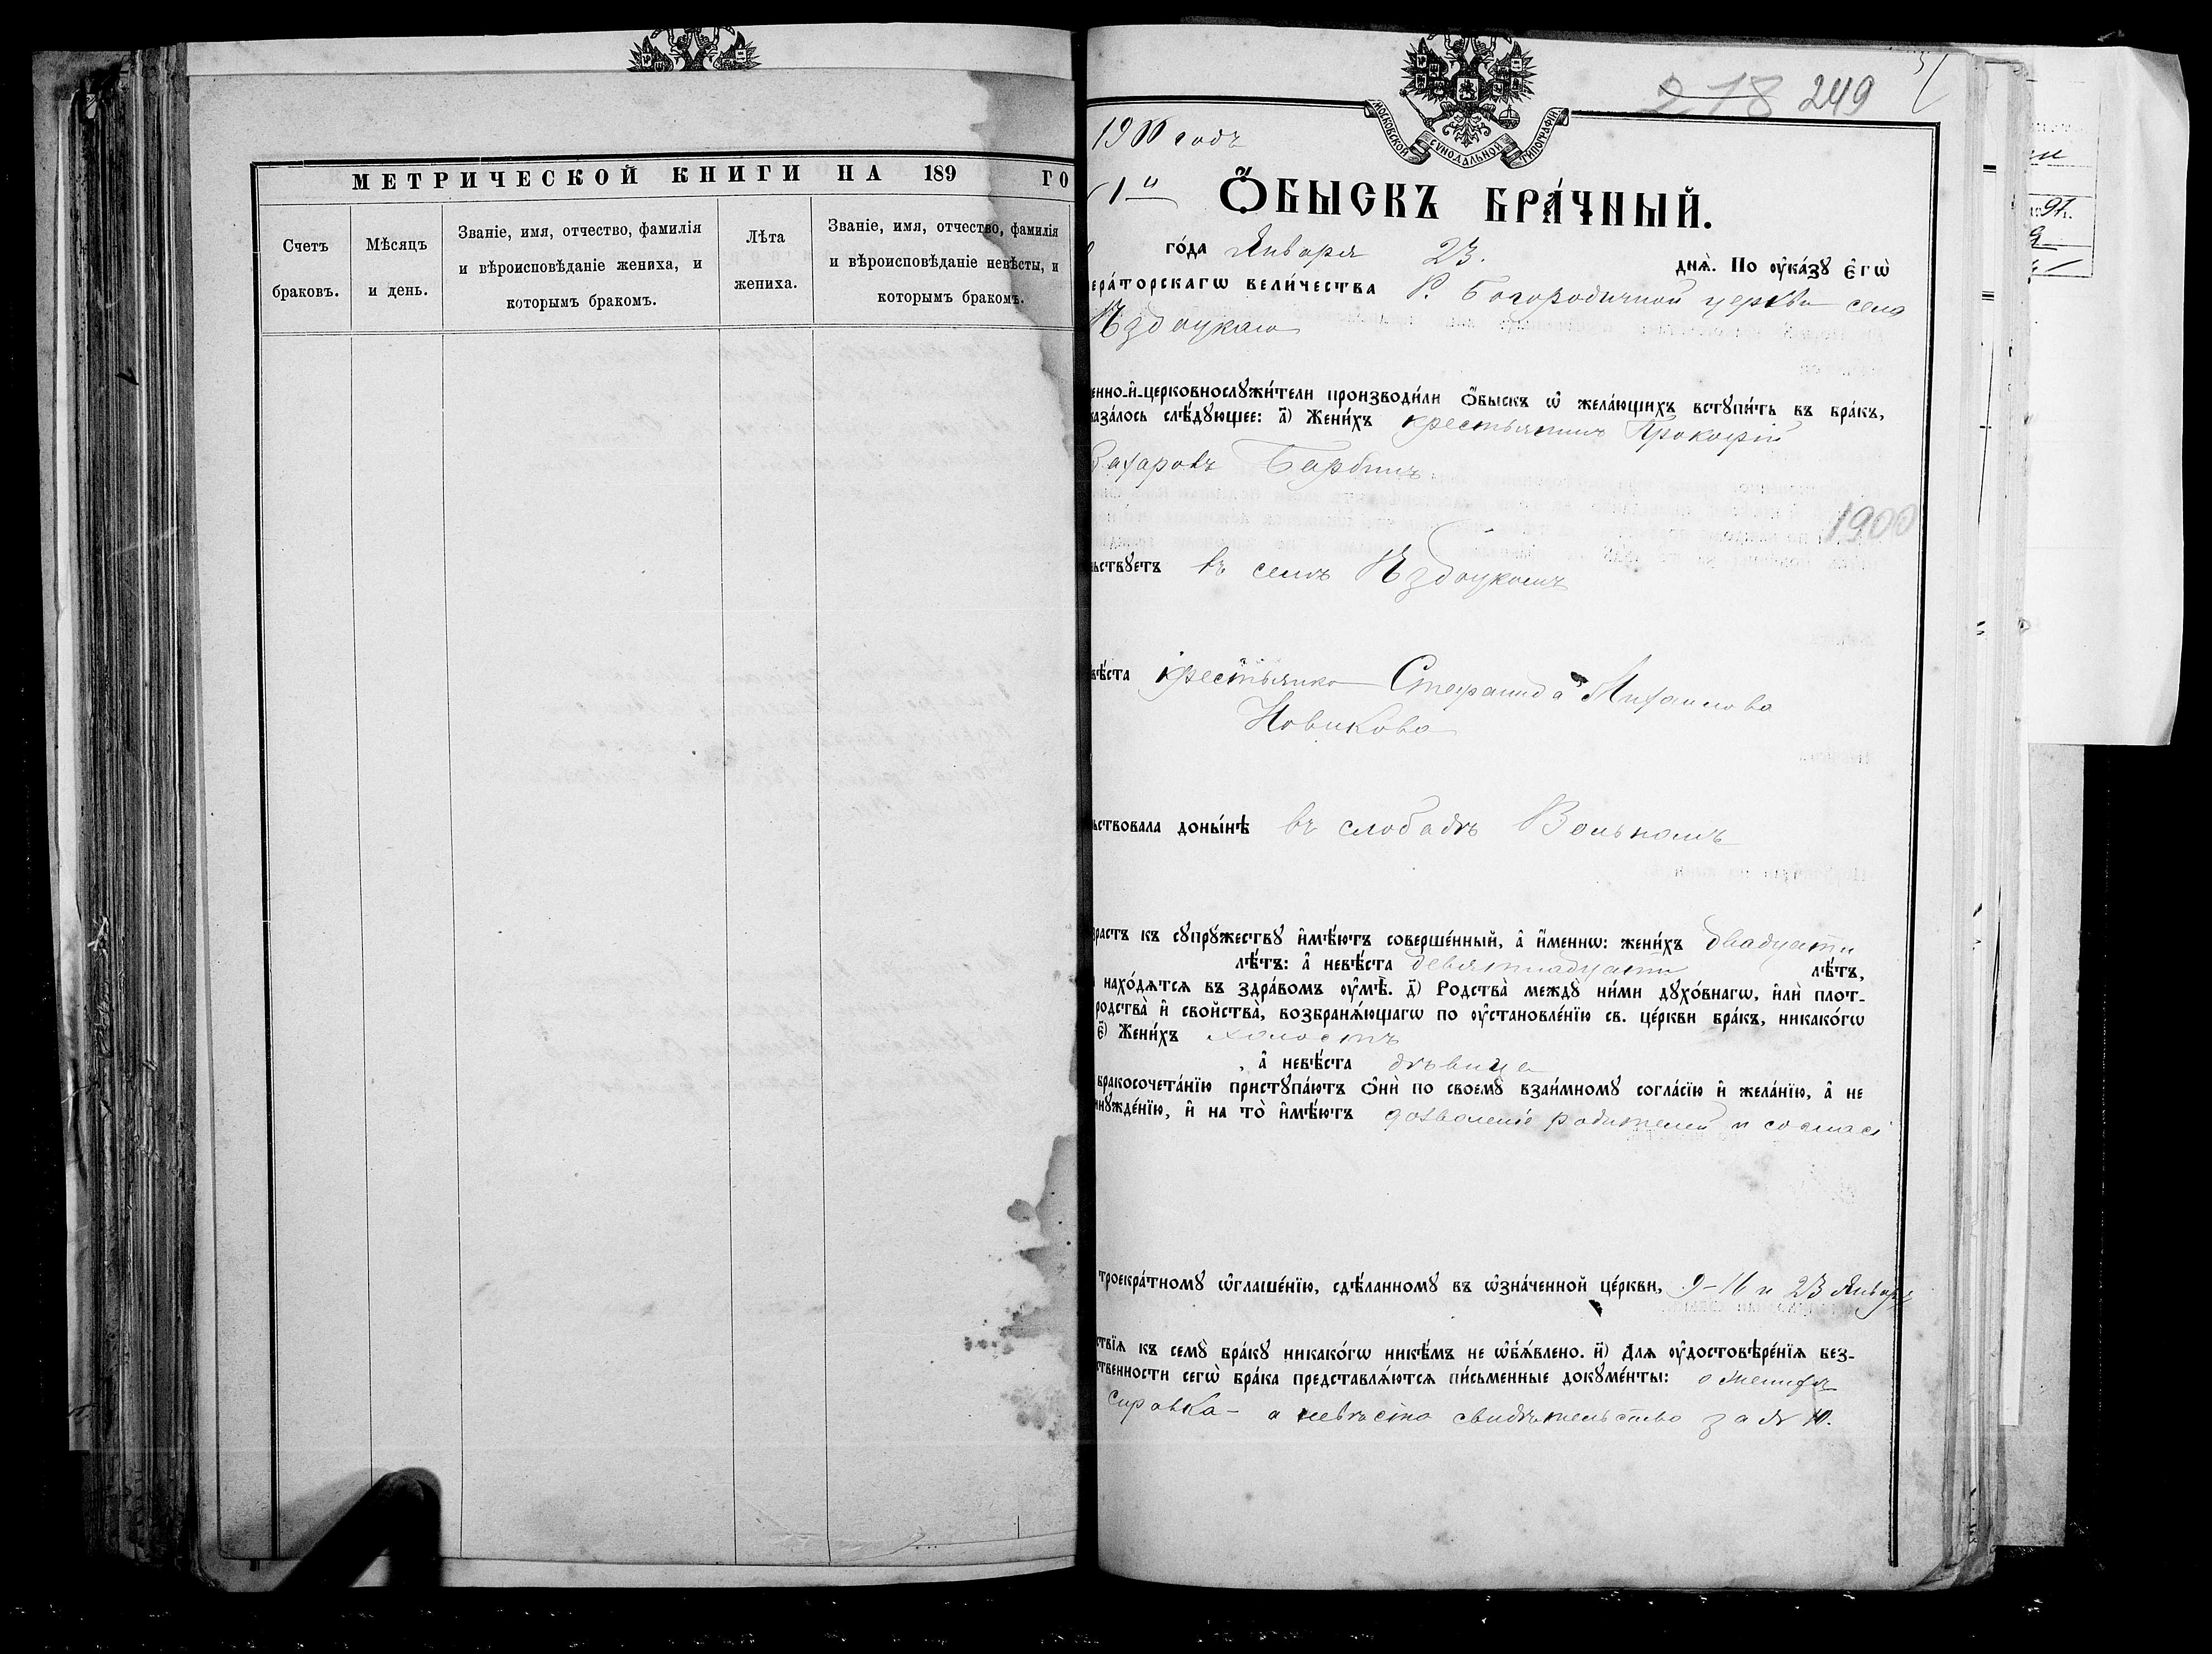 МЕТРИЧЕСКОЙ КНИГИ НА 189 ГО
Счетъ браковъ.
Мѣсяцъ и день.
Званіе, имя, отчество, фамилія
и вѣроисповѣданіе жениха, и
которымъ бракомъ.
Лѣта жениха.
Званіе, имя, отчество, фамилія
и вѣроисповѣданіе невѣсты, и
которымъ бракомъ.
218 249
МОСКОВСКОЙ СѴНОДАЛЬНОЙ ТИПОГРАФІИ
1900 годъ
1й
Ѻ҆БЫСКЪ БРА́ЧНЫЙ.
го́да Января 23. днѧ̀. По ᲂу҆ка́зꙋ є҆гѡ̀
ера́торскагѡ вели́чества Р. Богородичной церкви села
Ездоцкаго
енно-и҆-церковнослꙋжи́тели производи́ли ѻ҆́быскъ ѡ҆ жела́ющихъ встꙋпи́ть въ бра́къ,
каза́лось слѣ́дꙋющее: а҃) Жени́хъ крестьянинъ Прокофій
Захаровъ Бардинъ
1900
ьствꙋетъ въ селѣ Ездоцкомъ
вѣ́ста крестьянка Стефанида Михаилова
Новикова
ьствовала доны́нѣ въ слободѣ Вольномъ
зрастъ къ сꙋпрꙋжествꙋ и҆мѣ́ютъ соверше́нный, а҆ и҆́меннѡ: жени́хъ двадцати
лѣ́тъ: а҆ невѣ́ста девятнадцати лѣ́тъ,
нахо́дятся въ здра́вомъ ᲂу҆мѣ̀. д҃) Родства̀ междꙋ̀ ни́ми дꙋхо́внагѡ, и҆лѝ плот-
родства̀ и҆ сво́йства̀, возбраня́ющагѡ по ᲂу҆становле́нїю св. це́ркви бра́къ, никако́гѡ
є҃) Жени́хъ холостъ
, а҆ невѣ́ста дѣвица
бракосочета́нїю пристꙋпа́ютъ ѻ҆нѝ по своемꙋ̀ взаи́мномꙋ согла́сїю и҆ жела́нїю, а҆ не
инꙋжде́нїю, и҆ на то̀ и҆мѣ́ютъ дозволеніе родителей и согласі
троекра́тномꙋ ѡ҆глаше́нїю, сдѣ́ланномꙋ въ ѡ҆зна́ченной це́ркви, 9-16 и 23 Января
ствїя къ семꙋ̀ бра́кꙋ никако́гѡ никѣ́мъ не ѡ҆б̾я́влено. и҃) Для ᲂу҆достовѣре́нїя без-
ственности сегѡ̀ бра́ка представля́ются пи́сьменные докꙋме́нты: о женихѣ
справка - а невѣста свидѣтельство за № 10.